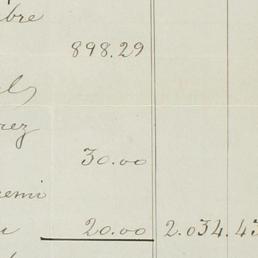 bre
898.29
rez
30.00
remi
20.00 2.034.43